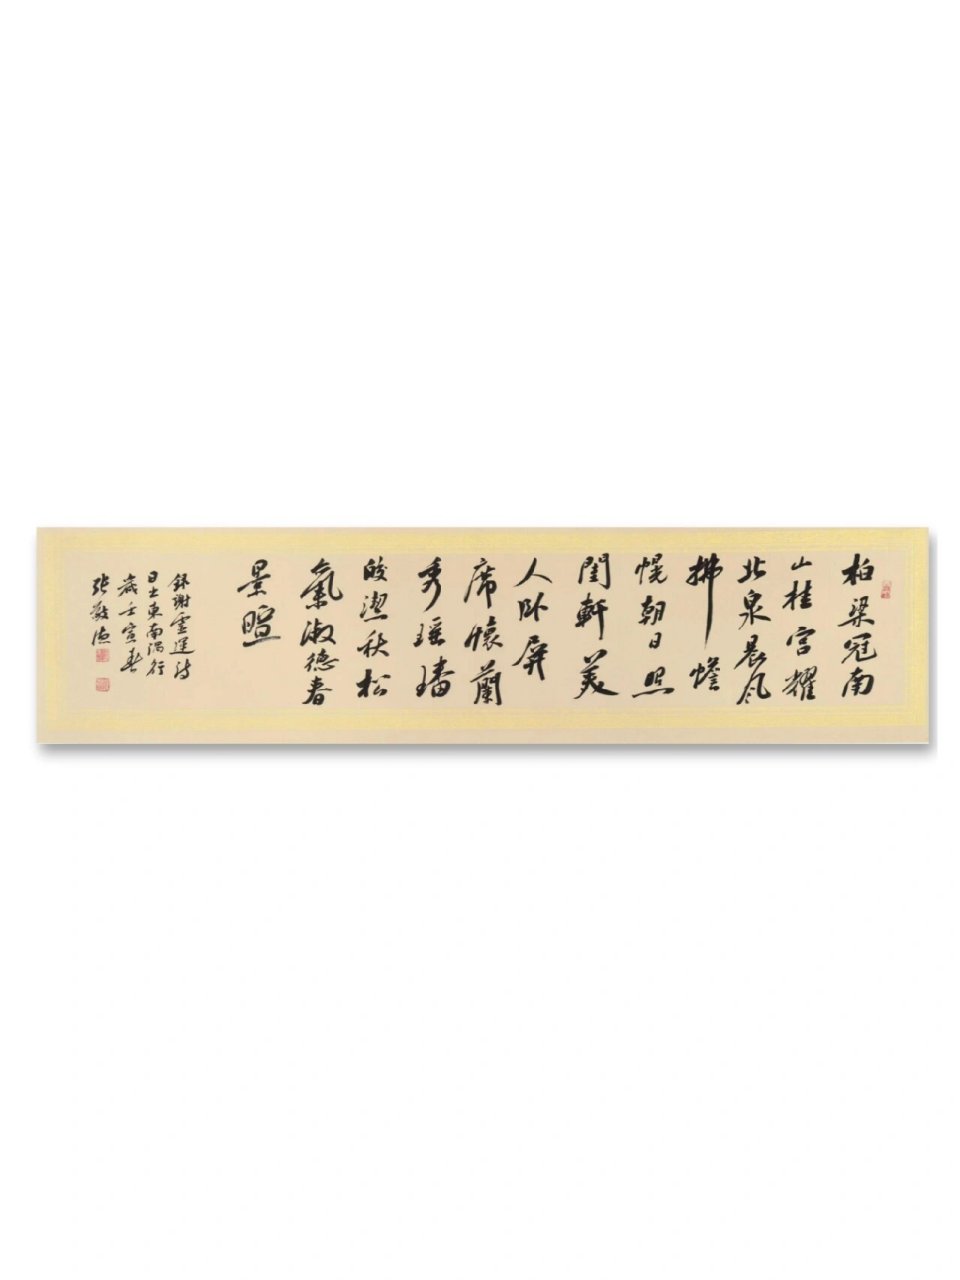 柏梁冠南
山桂宫耀
北泉晨风
拂幨
幌朝日照
閨軒美
人卧屏
席懷蘭
秀瑶璠
皎潔秋松
氣淑德春
景暄
録謝靈運詩
日出東南隅行
歲壬寅春
張敬